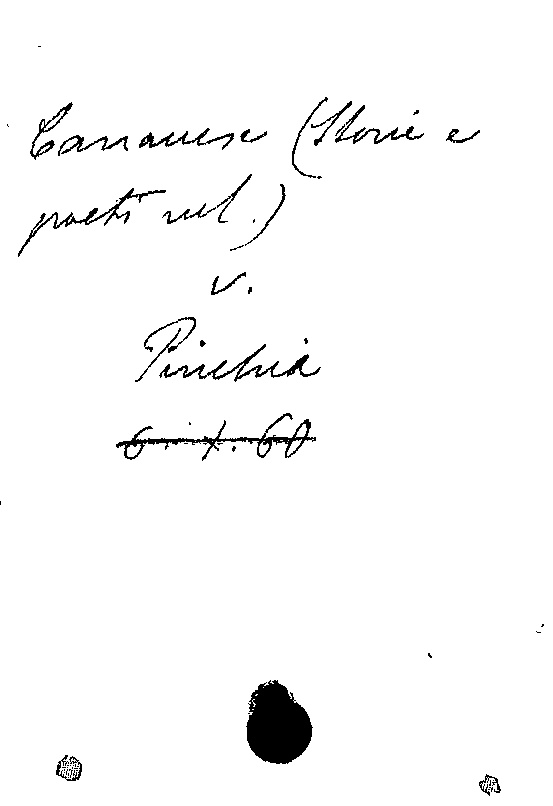 Canavese (Storie e
poeti nel.)
v.
Pinchia
6. X. 60